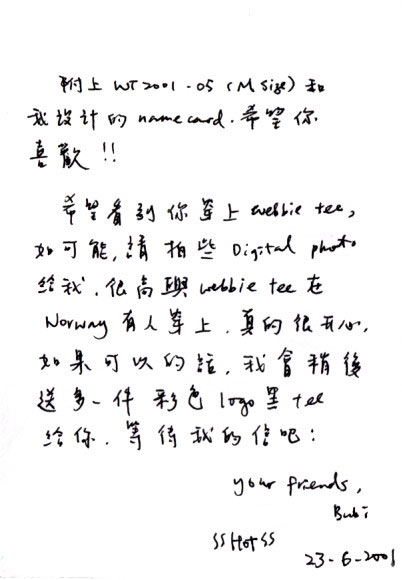 附上 WT2001-05 (M size) 和
我設計的 namecard. 希望你
喜歡!!
希望看到你穿上 webbie tee,
如可能, 請拍些 Digital photo
給我. 很高興 webbie tee 在
Norway 有人穿上. 真的很開心.
如果可以的話, 我會稍後
送多一件彩色 logo 黑 tee
給你. 等待我的信吧:
your friends,
Bubi
SSHotSS
23-6-2001